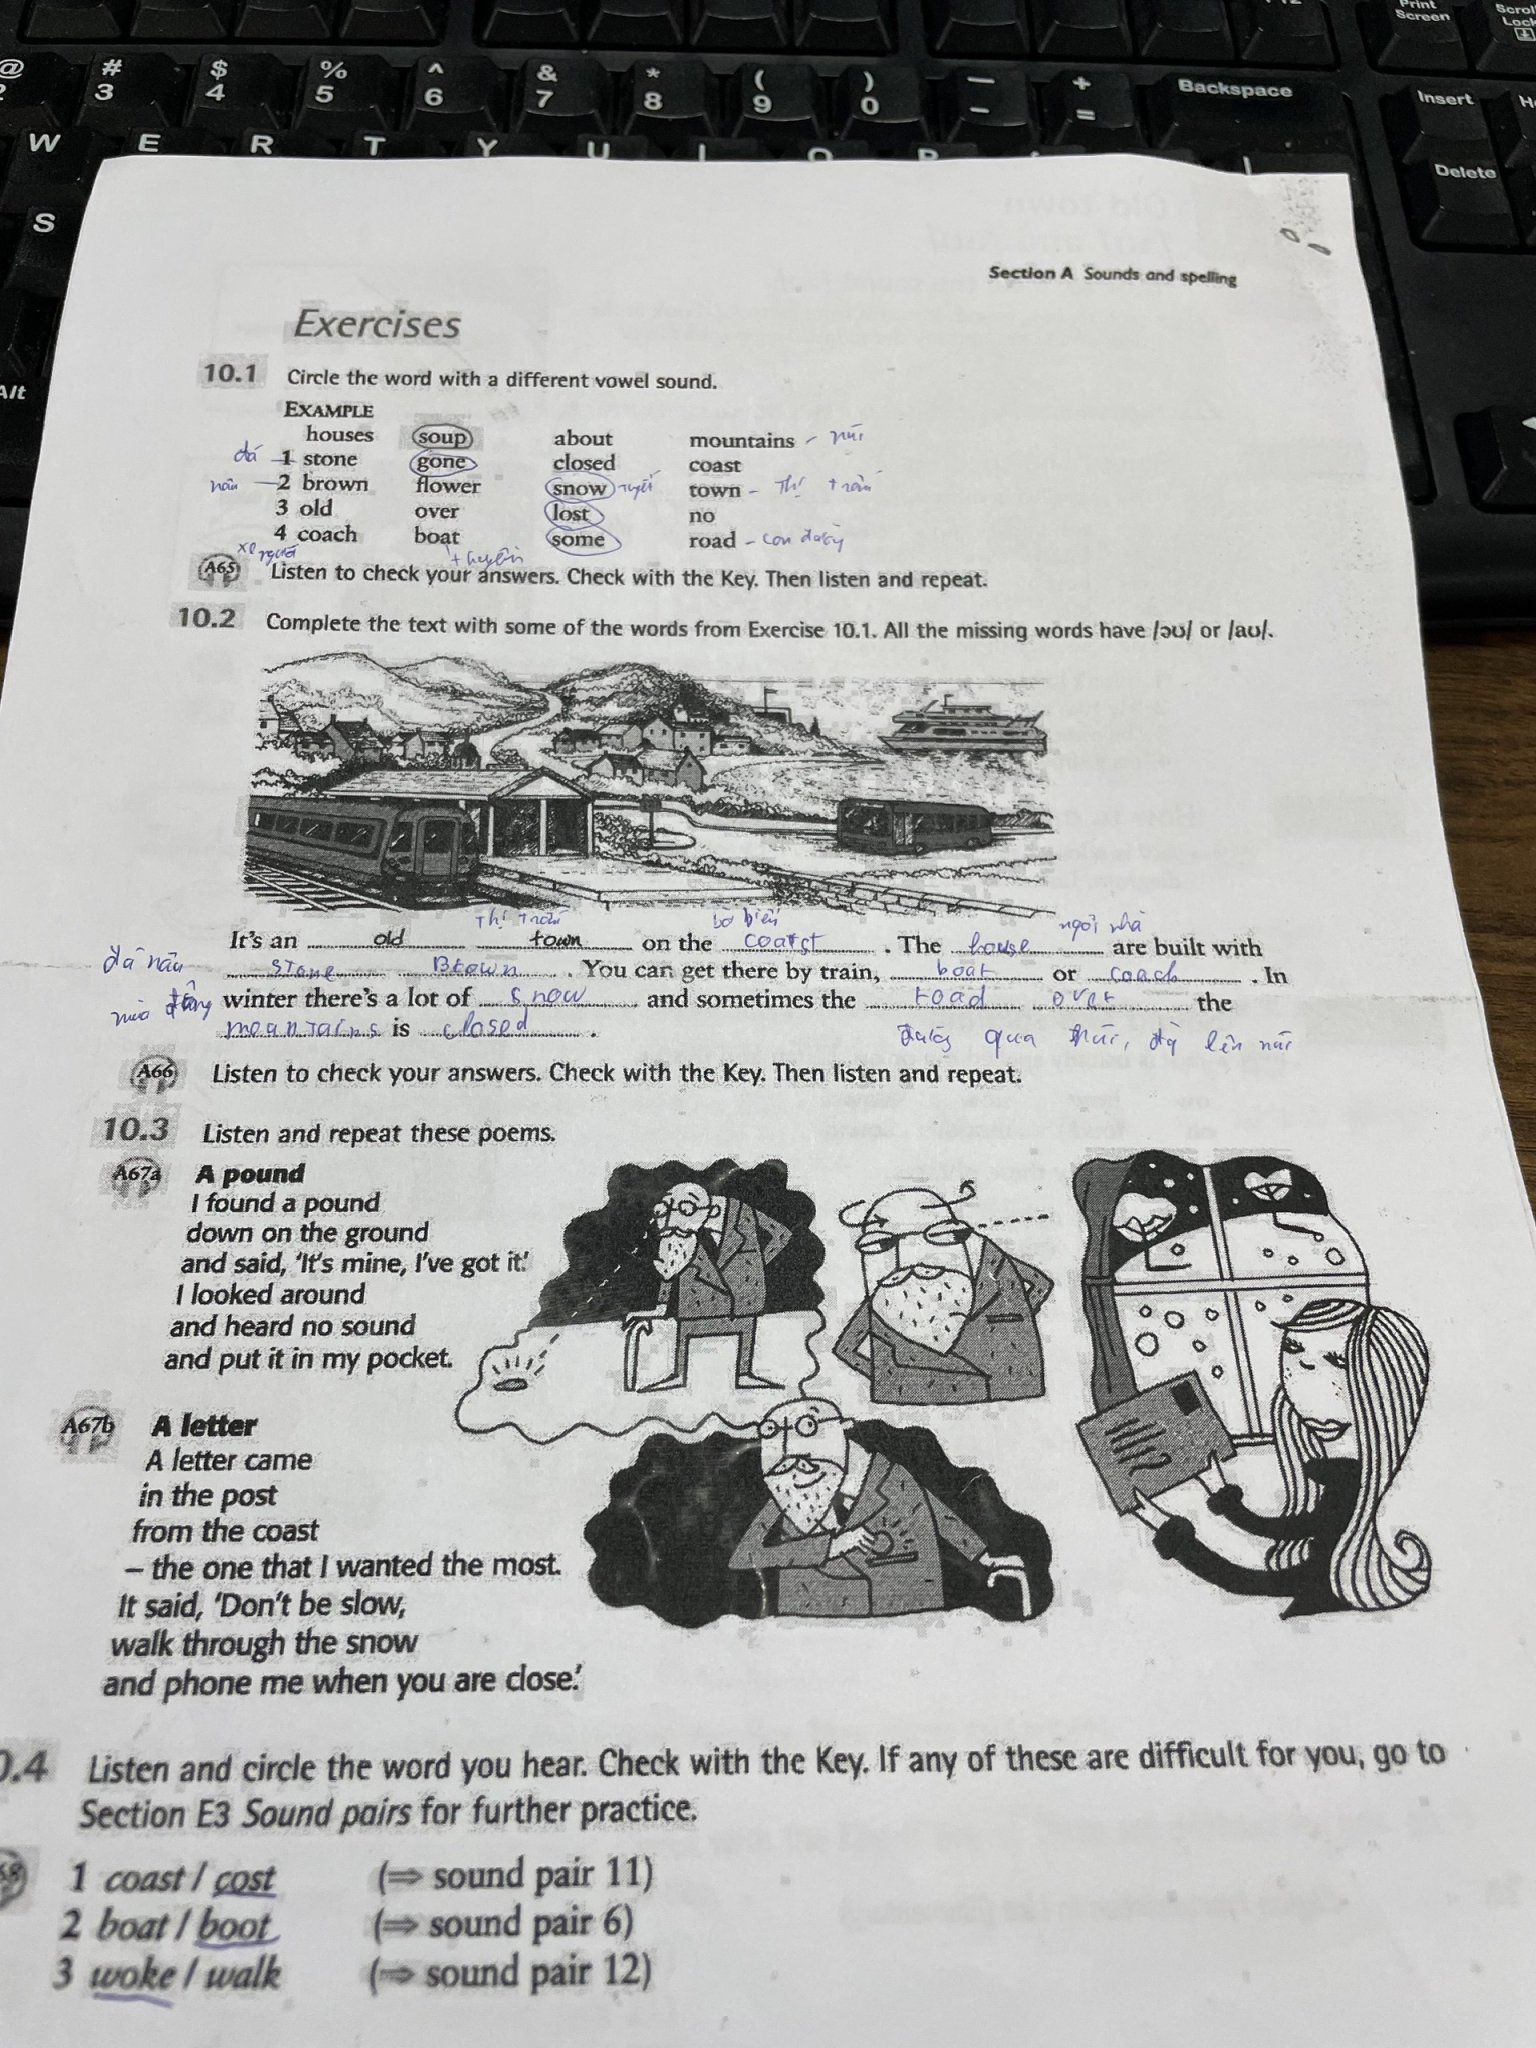 Print Screen
Scroll Lock
@ # $ % ^ & * ( ) — +
2 3 4 5 6 7 8 9 0 - =
Backspace
Insert
W E R T Y U I O P
Delete
S
Alt
Section A Sounds and spelling
Exercises
10.1 Circle the word with a different vowel sound.
EXAMPLE
houses soup about mountains - núi
đá - 1 stone gone closed coast
nâu - 2 brown flower snow tuyết town - Thị trấn
3 old over lost no
4 coach boat some road - con đường
A65 Listen to check your answers. Check with the Key. Then listen and repeat.
10.2 Complete the text with some of the words from Exercise 10.1. All the missing words have /əʊ/ or /aʊ/.
Thị trấn bờ biển ngôi nhà
It's an old town on the coast . The house are built with
đá nâu stone Brown . You can get there by train, boat or coach . In
mùa đông winter there's a lot of snow and sometimes the road over the
mountains is closed .
đường qua
A66 Listen to check your answers. Check with the Key. Then listen and repeat.
10.3 Listen and repeat these poems.
A67a A pound
I found a pound
down on the ground
and said, 'It's mine, I've got it.'
I looked around
and heard no sound
and put it in my pocket.
A67b A letter
A letter came
in the post
from the coast
– the one that I wanted the most.
It said, 'Don't be slow,
walk through the snow
and phone me when you are close.'
0.4 Listen and circle the word you hear. Check with the Key. If any of these are difficult for you, go to
Section E3 Sound pairs for further practice.
68 1 coast / cost (⇒ sound pair 11)
2 boat / boot (⇒ sound pair 6)
3 woke / walk (⇒ sound pair 12)